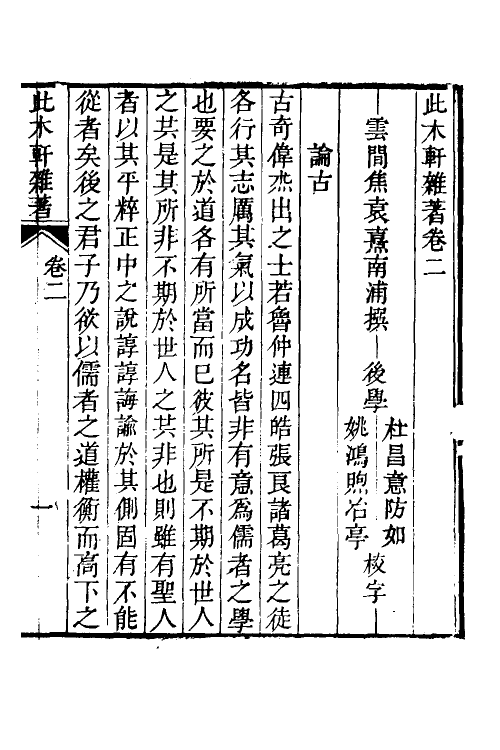 此木軒雜著卷二
雲間焦袁熹南浦撰 後學 杜昌意防如 姚鴻煦冶亭 校字
論古
古奇偉杰出之士若魯仲連四皓張良諸葛亮之徒
各行其志厲其氣以成功名皆非有意為儒者之學
也要之於道各有所當而已彼其所是不期於世人
之共是其所非不期於世人之共非也則雖有聖人
者以其平粹正中之說諄諄誨諭於其側固有不能
從者矣後之君子乃欲以儒者之道權衡而高下之
此木軒雜著 卷二 一